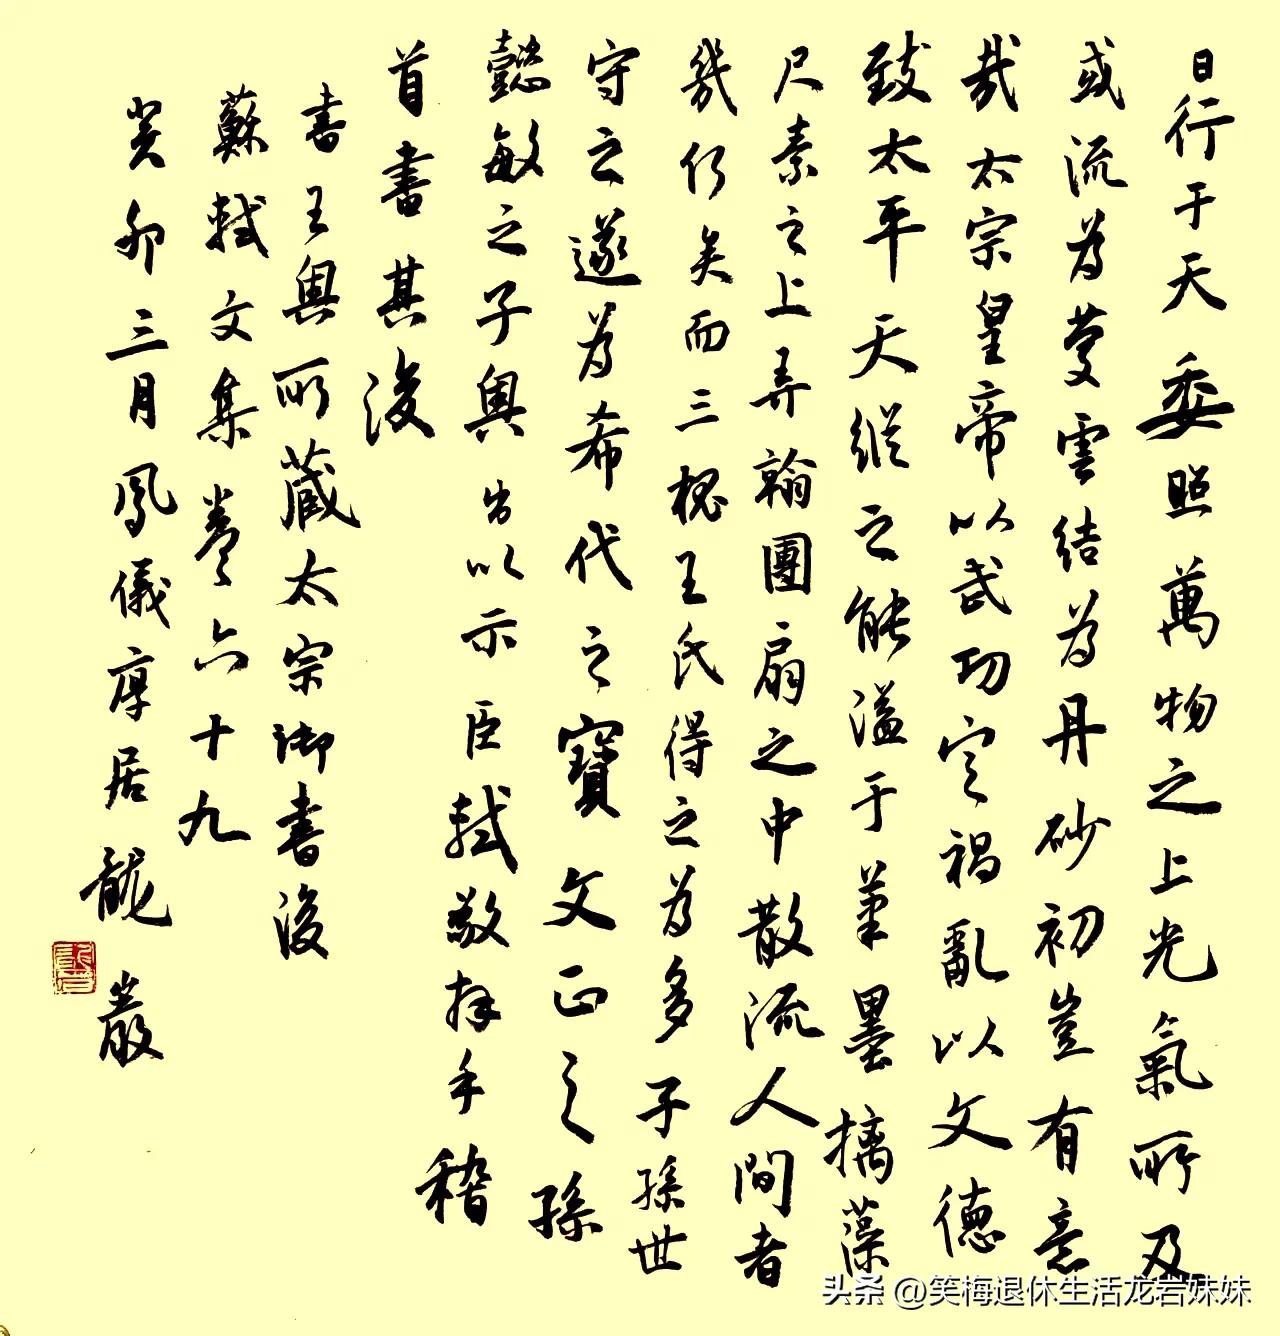 日行于天委照萬物之上光氣所及
或流為慶雲結為丹砂初豈有意
哉太宗皇帝以武功定禍亂以文德
致太平天縱之能溢于筆墨摛藻
尺素之上弄翰團扇之中散流人間者
幾何矣而三槐王氏得之為多子孫世
守之遂為希代之寶文正之孫
懿敏之子輿出以示臣軾敬拜手稽
首書其後
書王輿所藏太宗御書後
蘇軾文集卷六十九
癸卯三月鳳儀庠居龍巖
头条 @笑梅退休生活龙岩妹妹